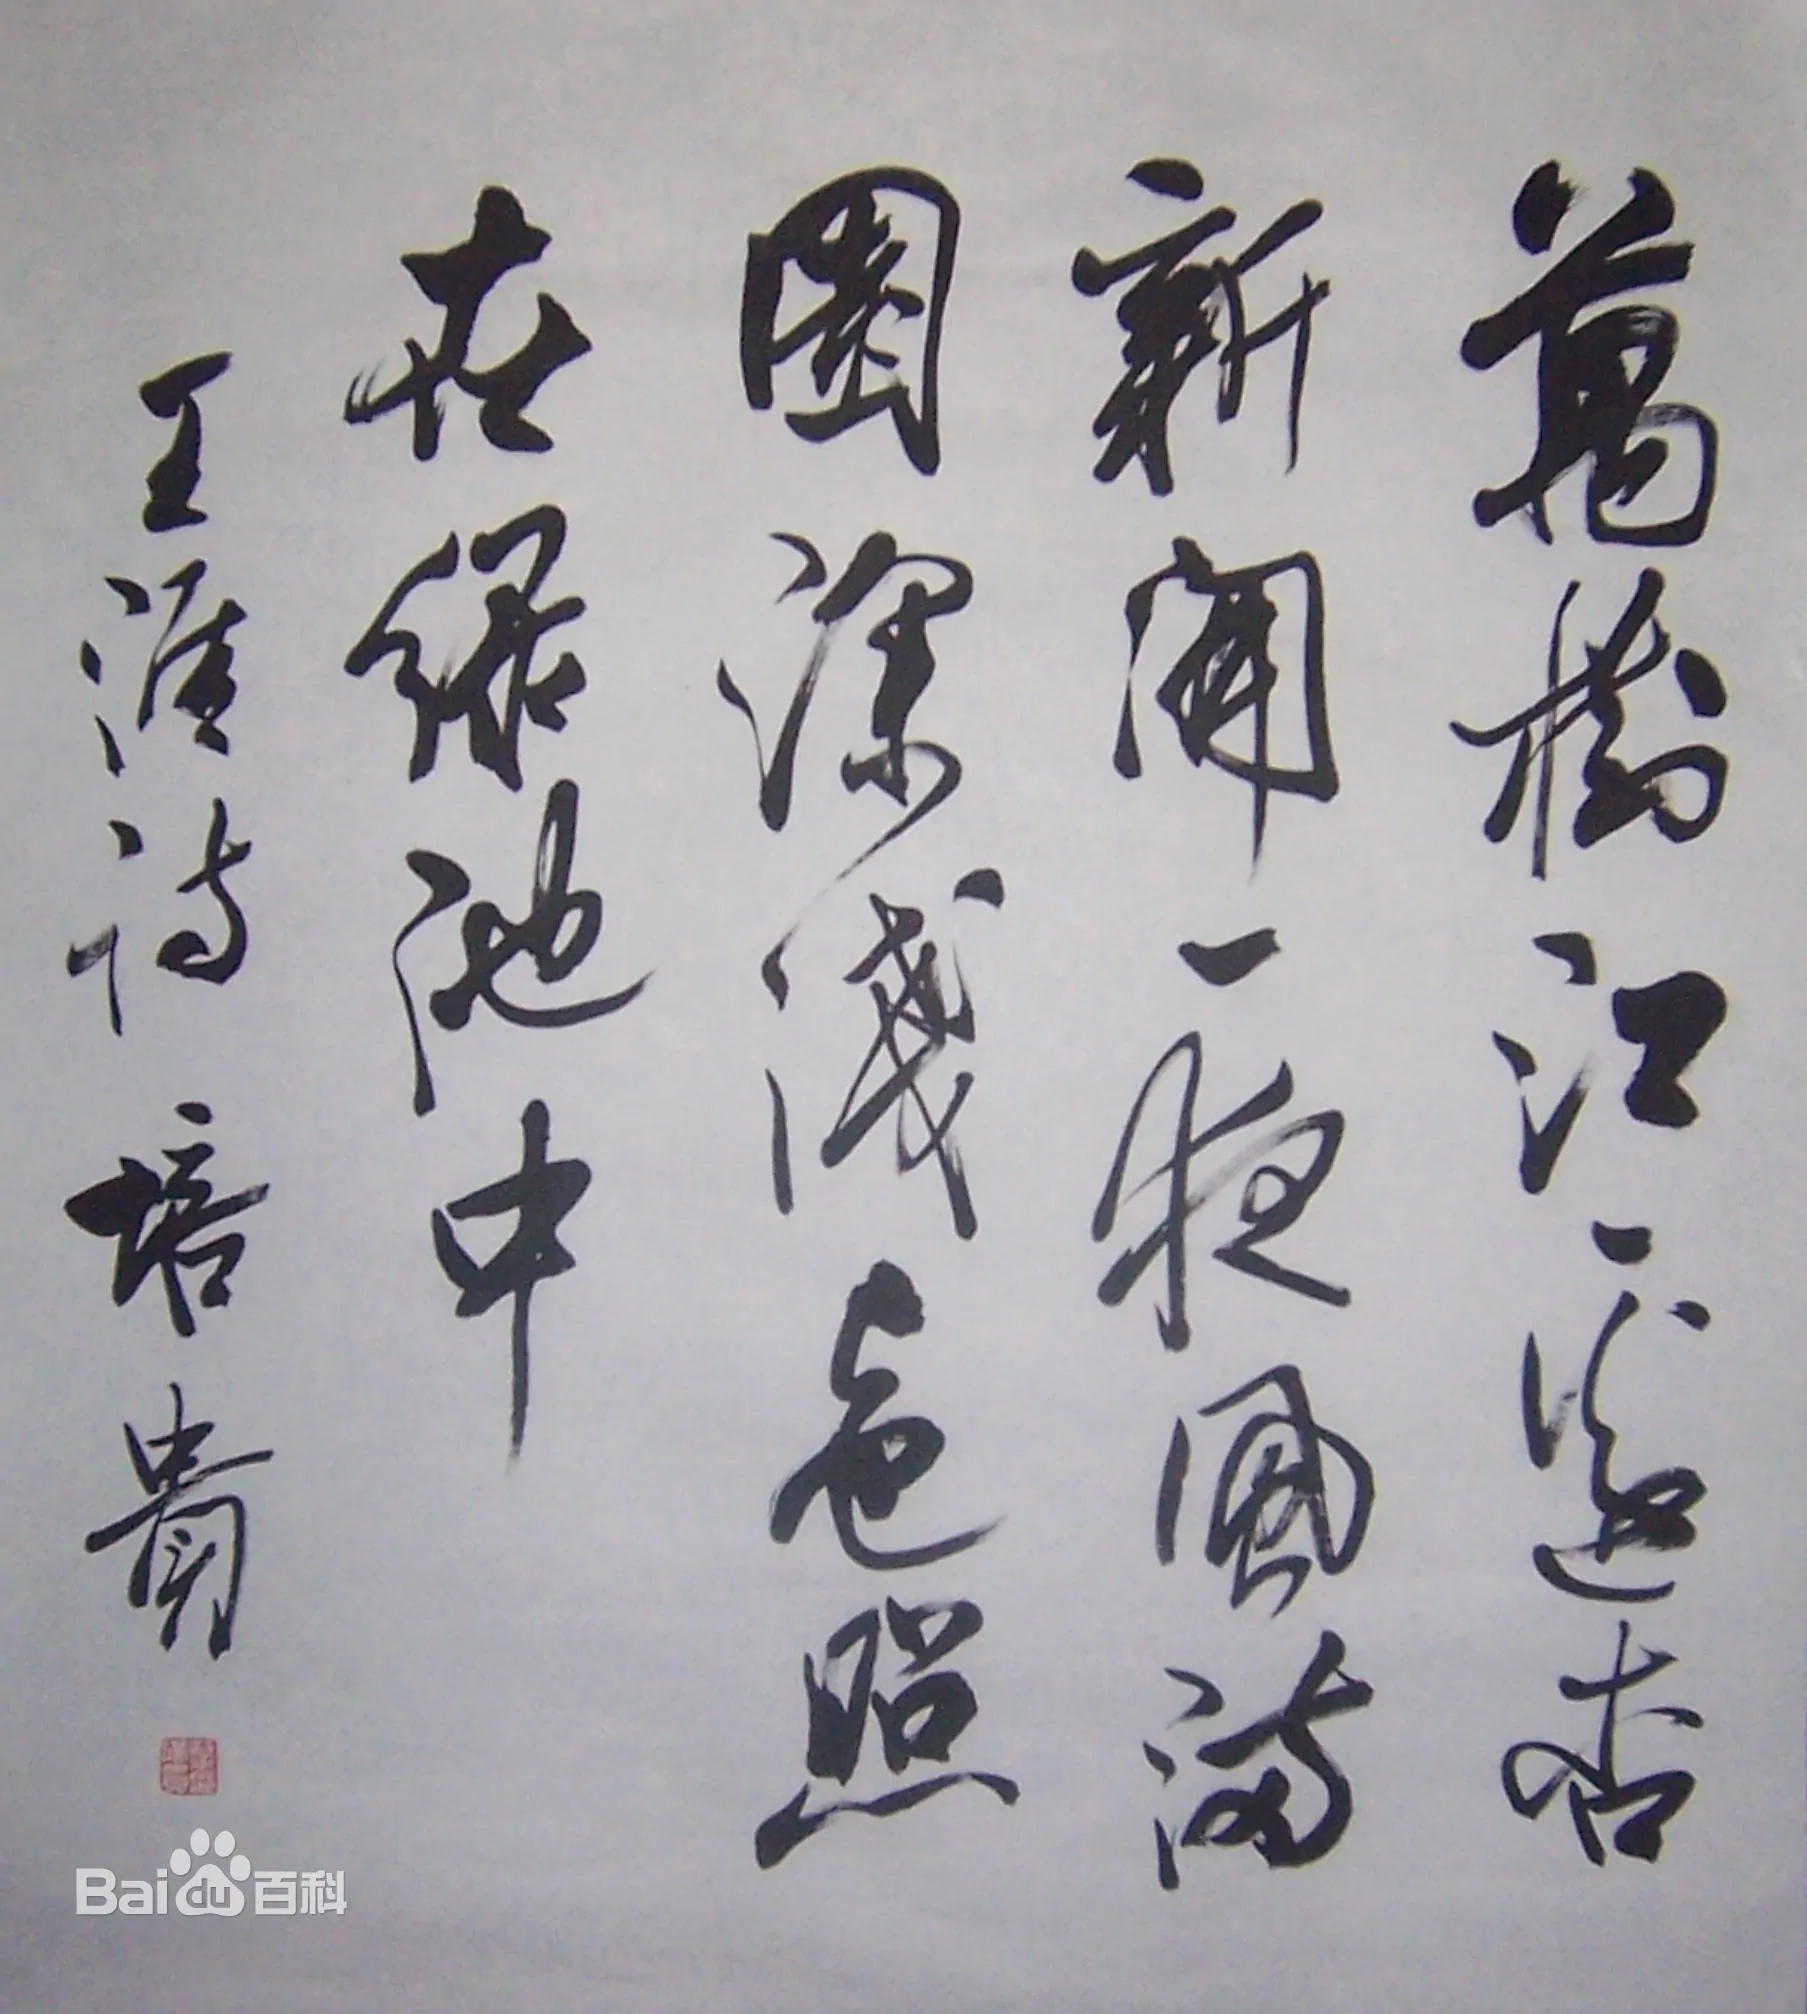 萬樹江邊杏
新開一夜風滿
園深淺色照
在綠池中
王涯詩 培貴
Baidu百科